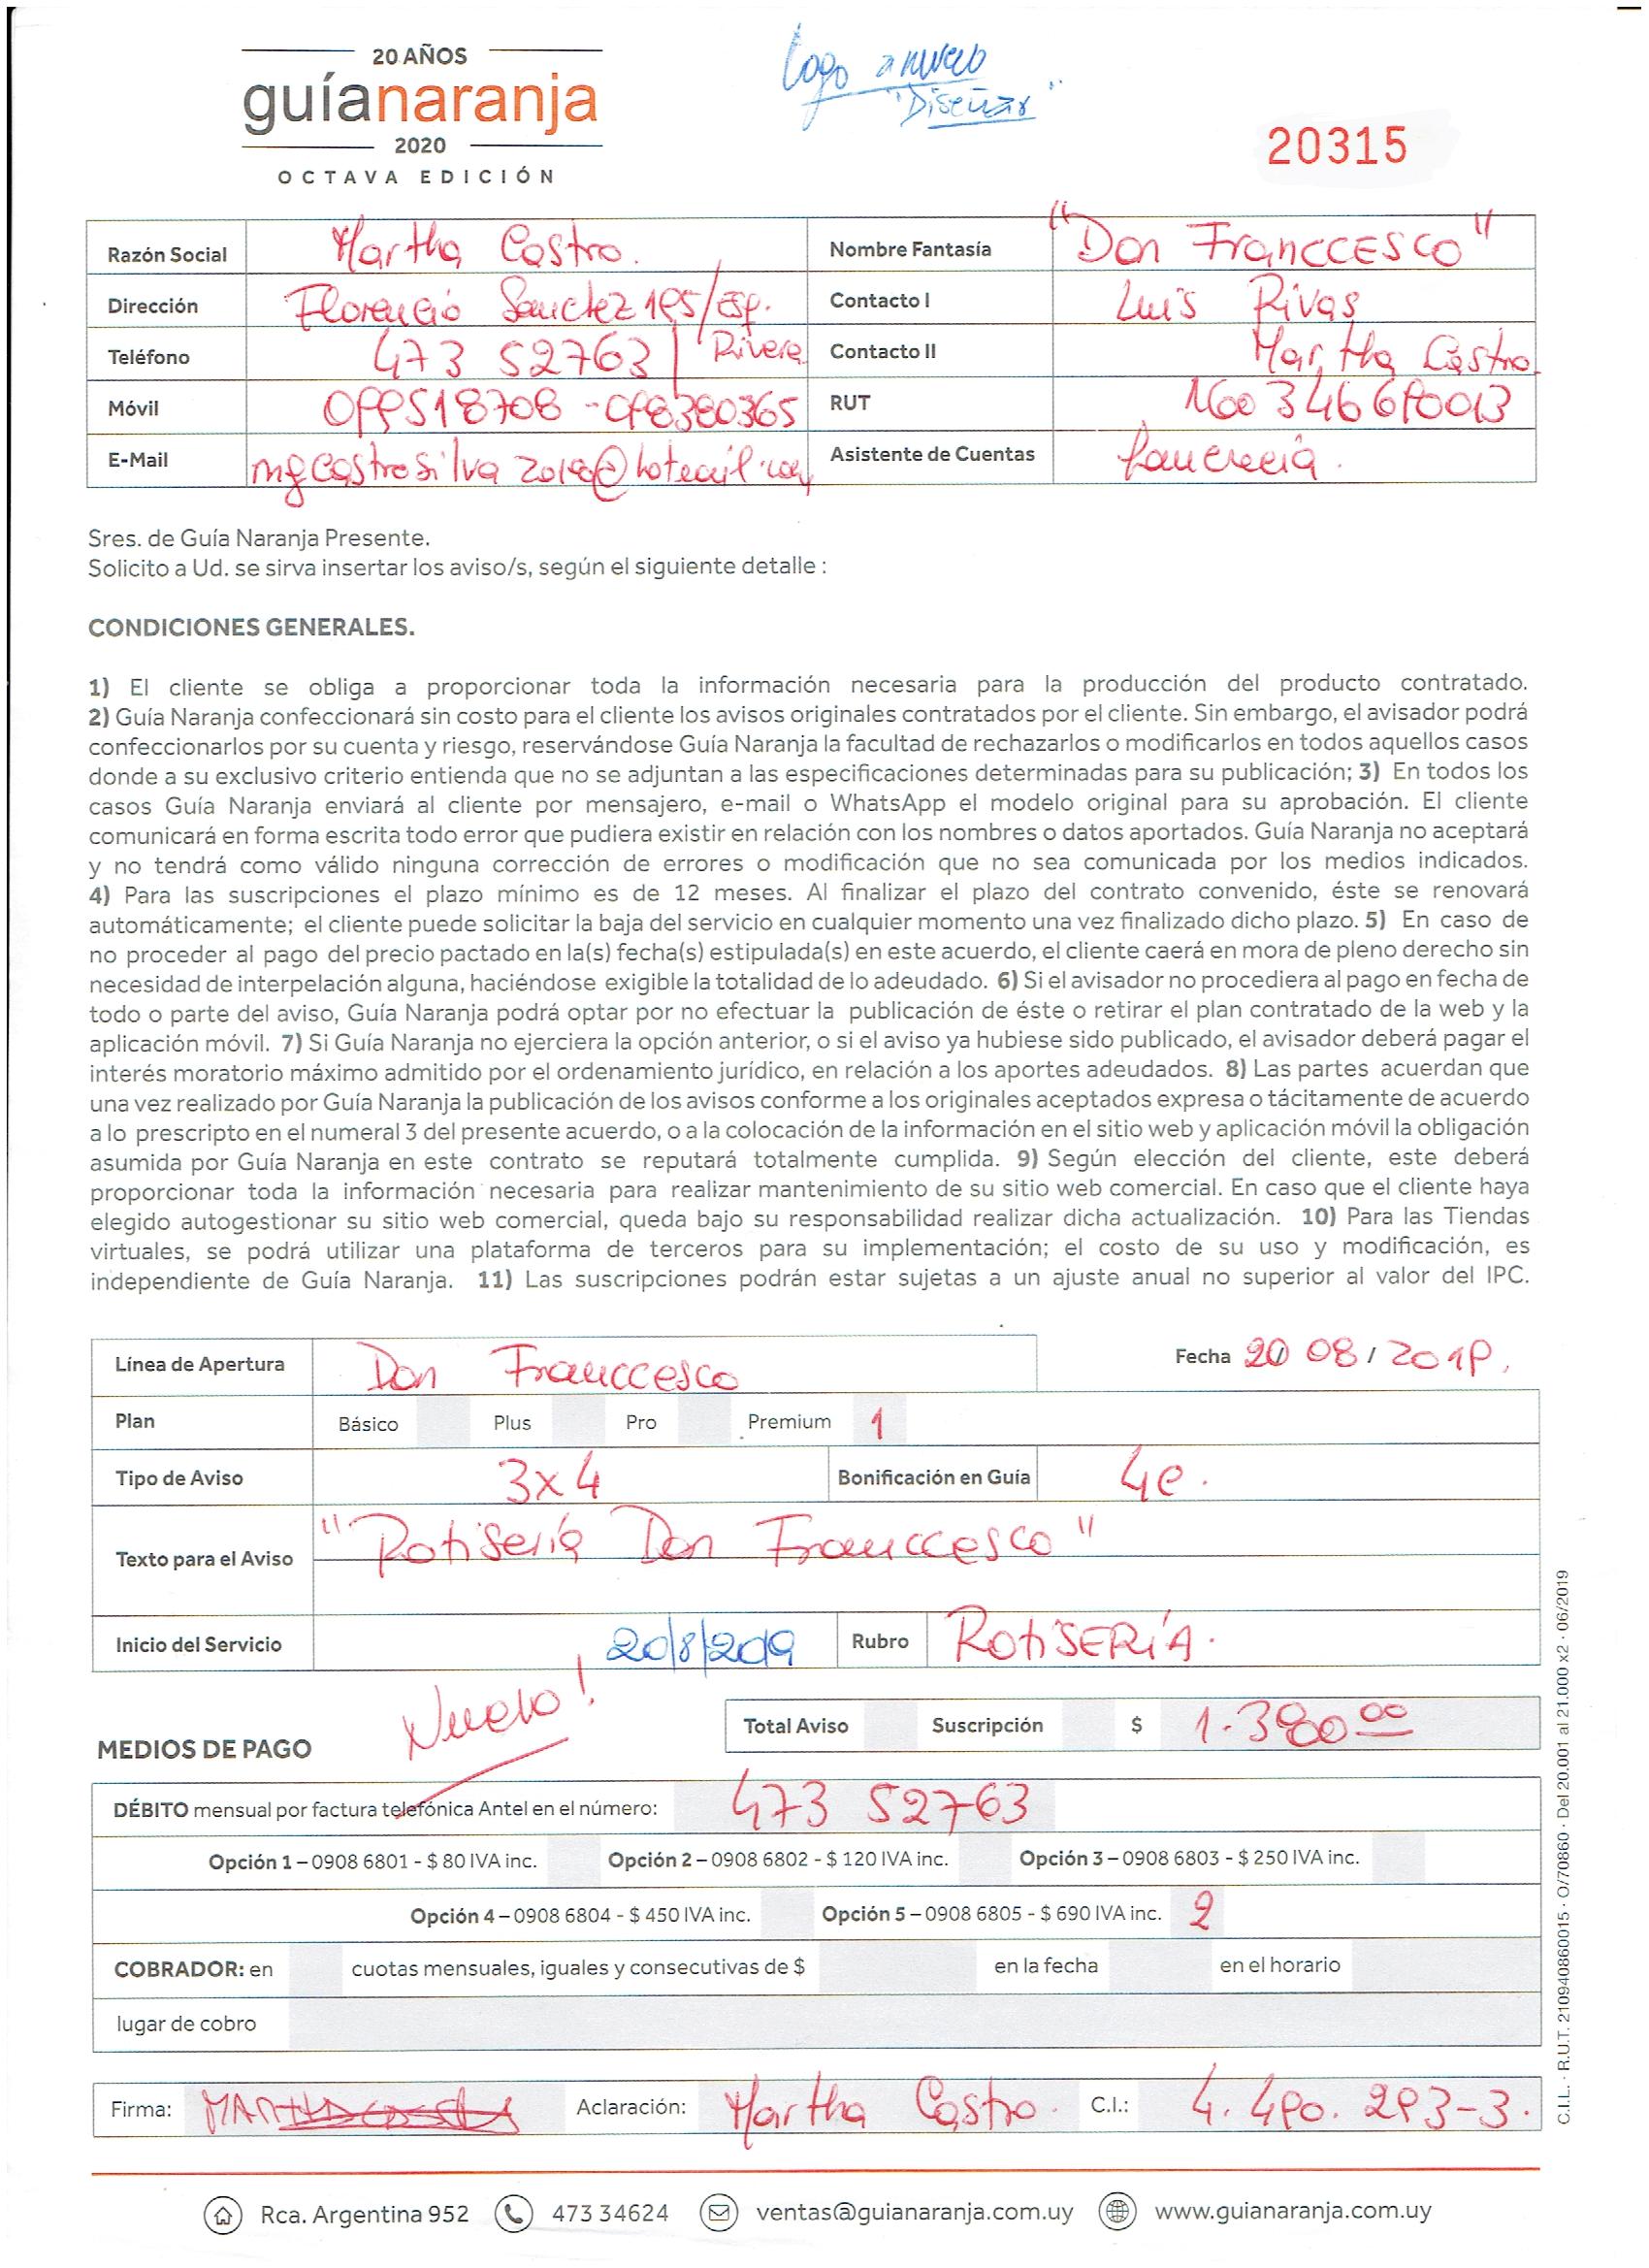 20 AÑOS
guíanaranja
2020
OCTAVA EDICIÓN
Logo a nuevo
"Diseñar"
20315
Razón Social Martha Castro. Nombre Fantasía "Don Franccesco"
Dirección Florencio Sanchez 195/esq. Rivera Contacto I Luis Rivas
Teléfono 473 52763 Contacto II Martha Castro
Móvil 099518708 - 098380365 RUT
E-Mail Asistente de Cuentas
Sres. de Guía Naranja Presente.
Solicito a Ud. se sirva insertar los aviso/s, según el siguiente detalle :
CONDICIONES GENERALES.
1) El cliente se obliga a proporcionar toda la información necesaria para la producción del producto contratado.
2) Guía Naranja confeccionará sin costo para el cliente los avisos originales contratados por el cliente. Sin embargo, el avisador podrá
confeccionarlos por su cuenta y riesgo, reservándose Guía Naranja la facultad de rechazarlos o modificarlos en todos aquellos casos
donde a su exclusivo criterio entienda que no se adjuntan a las especificaciones determinadas para su publicación; 3) En todos los
casos Guía Naranja enviará al cliente por mensajero, e-mail o WhatsApp el modelo original para su aprobación. El cliente
comunicará en forma escrita todo error que pudiera existir en relación con los nombres o datos aportados. Guía Naranja no aceptará
y no tendrá como válido ninguna corrección de errores o modificación que no sea comunicada por los medios indicados.
4) Para las suscripciones el plazo mínimo es de 12 meses. Al finalizar el plazo del contrato convenido, éste se renovará
automáticamente; el cliente puede solicitar la baja del servicio en cualquier momento una vez finalizado dicho plazo. 5) En caso de
no proceder al pago del precio pactado en la(s) fecha(s) estipulada(s) en este acuerdo, el cliente caerá en mora de pleno derecho sin
necesidad de interpelación alguna, haciéndose exigible la totalidad de lo adeudado. 6) Si el avisador no procediera al pago en fecha de
todo o parte del aviso, Guía Naranja podrá optar por no efectuar la publicación de éste o retirar el plan contratado de la web y la
aplicación móvil. 7) Si Guía Naranja no ejerciera la opción anterior, o si el aviso ya hubiese sido publicado, el avisador deberá pagar el
interés moratorio máximo admitido por el ordenamiento jurídico, en relación a los aportes adeudados. 8) Las partes acuerdan que
una vez realizado por Guía Naranja la publicación de los avisos conforme a los originales aceptados expresa o tácitamente de acuerdo
a lo prescripto en el numeral 3 del presente acuerdo, o a la colocación de la información en el sitio web y aplicación móvil la obligación
asumida por Guía Naranja en este contrato se reputará totalmente cumplida. 9) Según elección del cliente, este deberá
proporcionar toda la información necesaria para realizar mantenimiento de su sitio web comercial. En caso que el cliente haya
elegido autogestionar su sitio web comercial, queda bajo su responsabilidad realizar dicha actualización. 10) Para las Tiendas
virtuales, se podrá utilizar una plataforma de terceros para su implementación; el costo de su uso y modificación, es
independiente de Guía Naranja. 11) Las suscripciones podrán estar sujetas a un ajuste anual no superior al valor del IPC.
Línea de Apertura Don Franccesco Fecha 20/ 08 / 2019.
Plan Básico Plus Pro Premium 1
Tipo de Aviso 3x4 Bonificación en Guía 4e.
Texto para el Aviso "Rotisería Don Franccesco"
Inicio del Servicio 20/8/2019 Rubro ROTISERÍA.
Nuevo!
Total Aviso Suscripción $ 1.380 00
MEDIOS DE PAGO
DÉBITO mensual por factura telefónica Antel en el número: 473 52763
Opción 1 – 0908 6801 - $ 80 IVA inc. Opción 2 – 0908 6802 - $ 120 IVA inc. Opción 3 – 0908 6803 - $ 250 IVA inc.
Opción 4 – 0908 6804 - $ 450 IVA inc. Opción 5 – 0908 6805 - $ 690 IVA inc. 2
COBRADOR: en cuotas mensuales, iguales y consecutivas de $ en la fecha en el horario
lugar de cobro
Firma: Aclaración: Martha Castro. C.I.: 4. 490. 293-3.
Rca. Argentina 952 473 34624 ventas@guianaranja.com.uy www.guianaranja.com.uy
C.I.L. · R.U.T. 210940860015 · O/70860 · Del 20.001 al 21.000 x2 · 06/2019